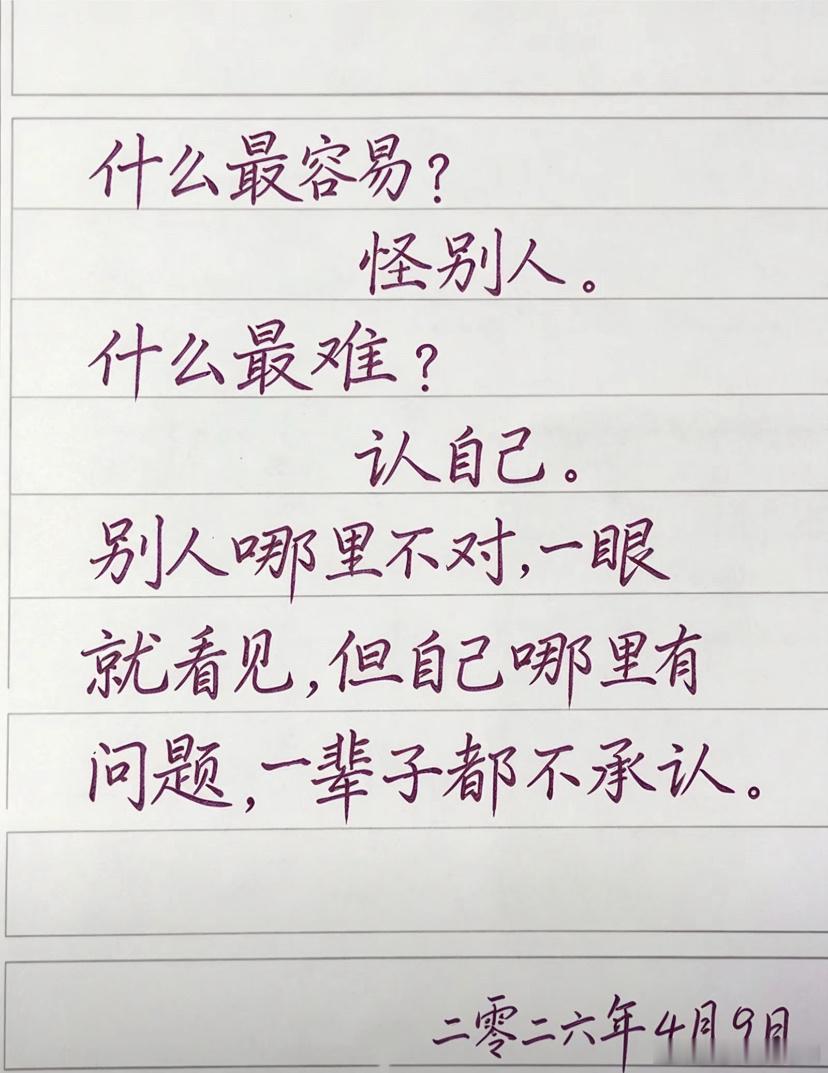 什么最容易？
怪别人。
什么最难？
认自己。
别人哪里不对，一眼
就看见，但自己哪里有
问题，一辈子都不承认。
二零二六年4月9日